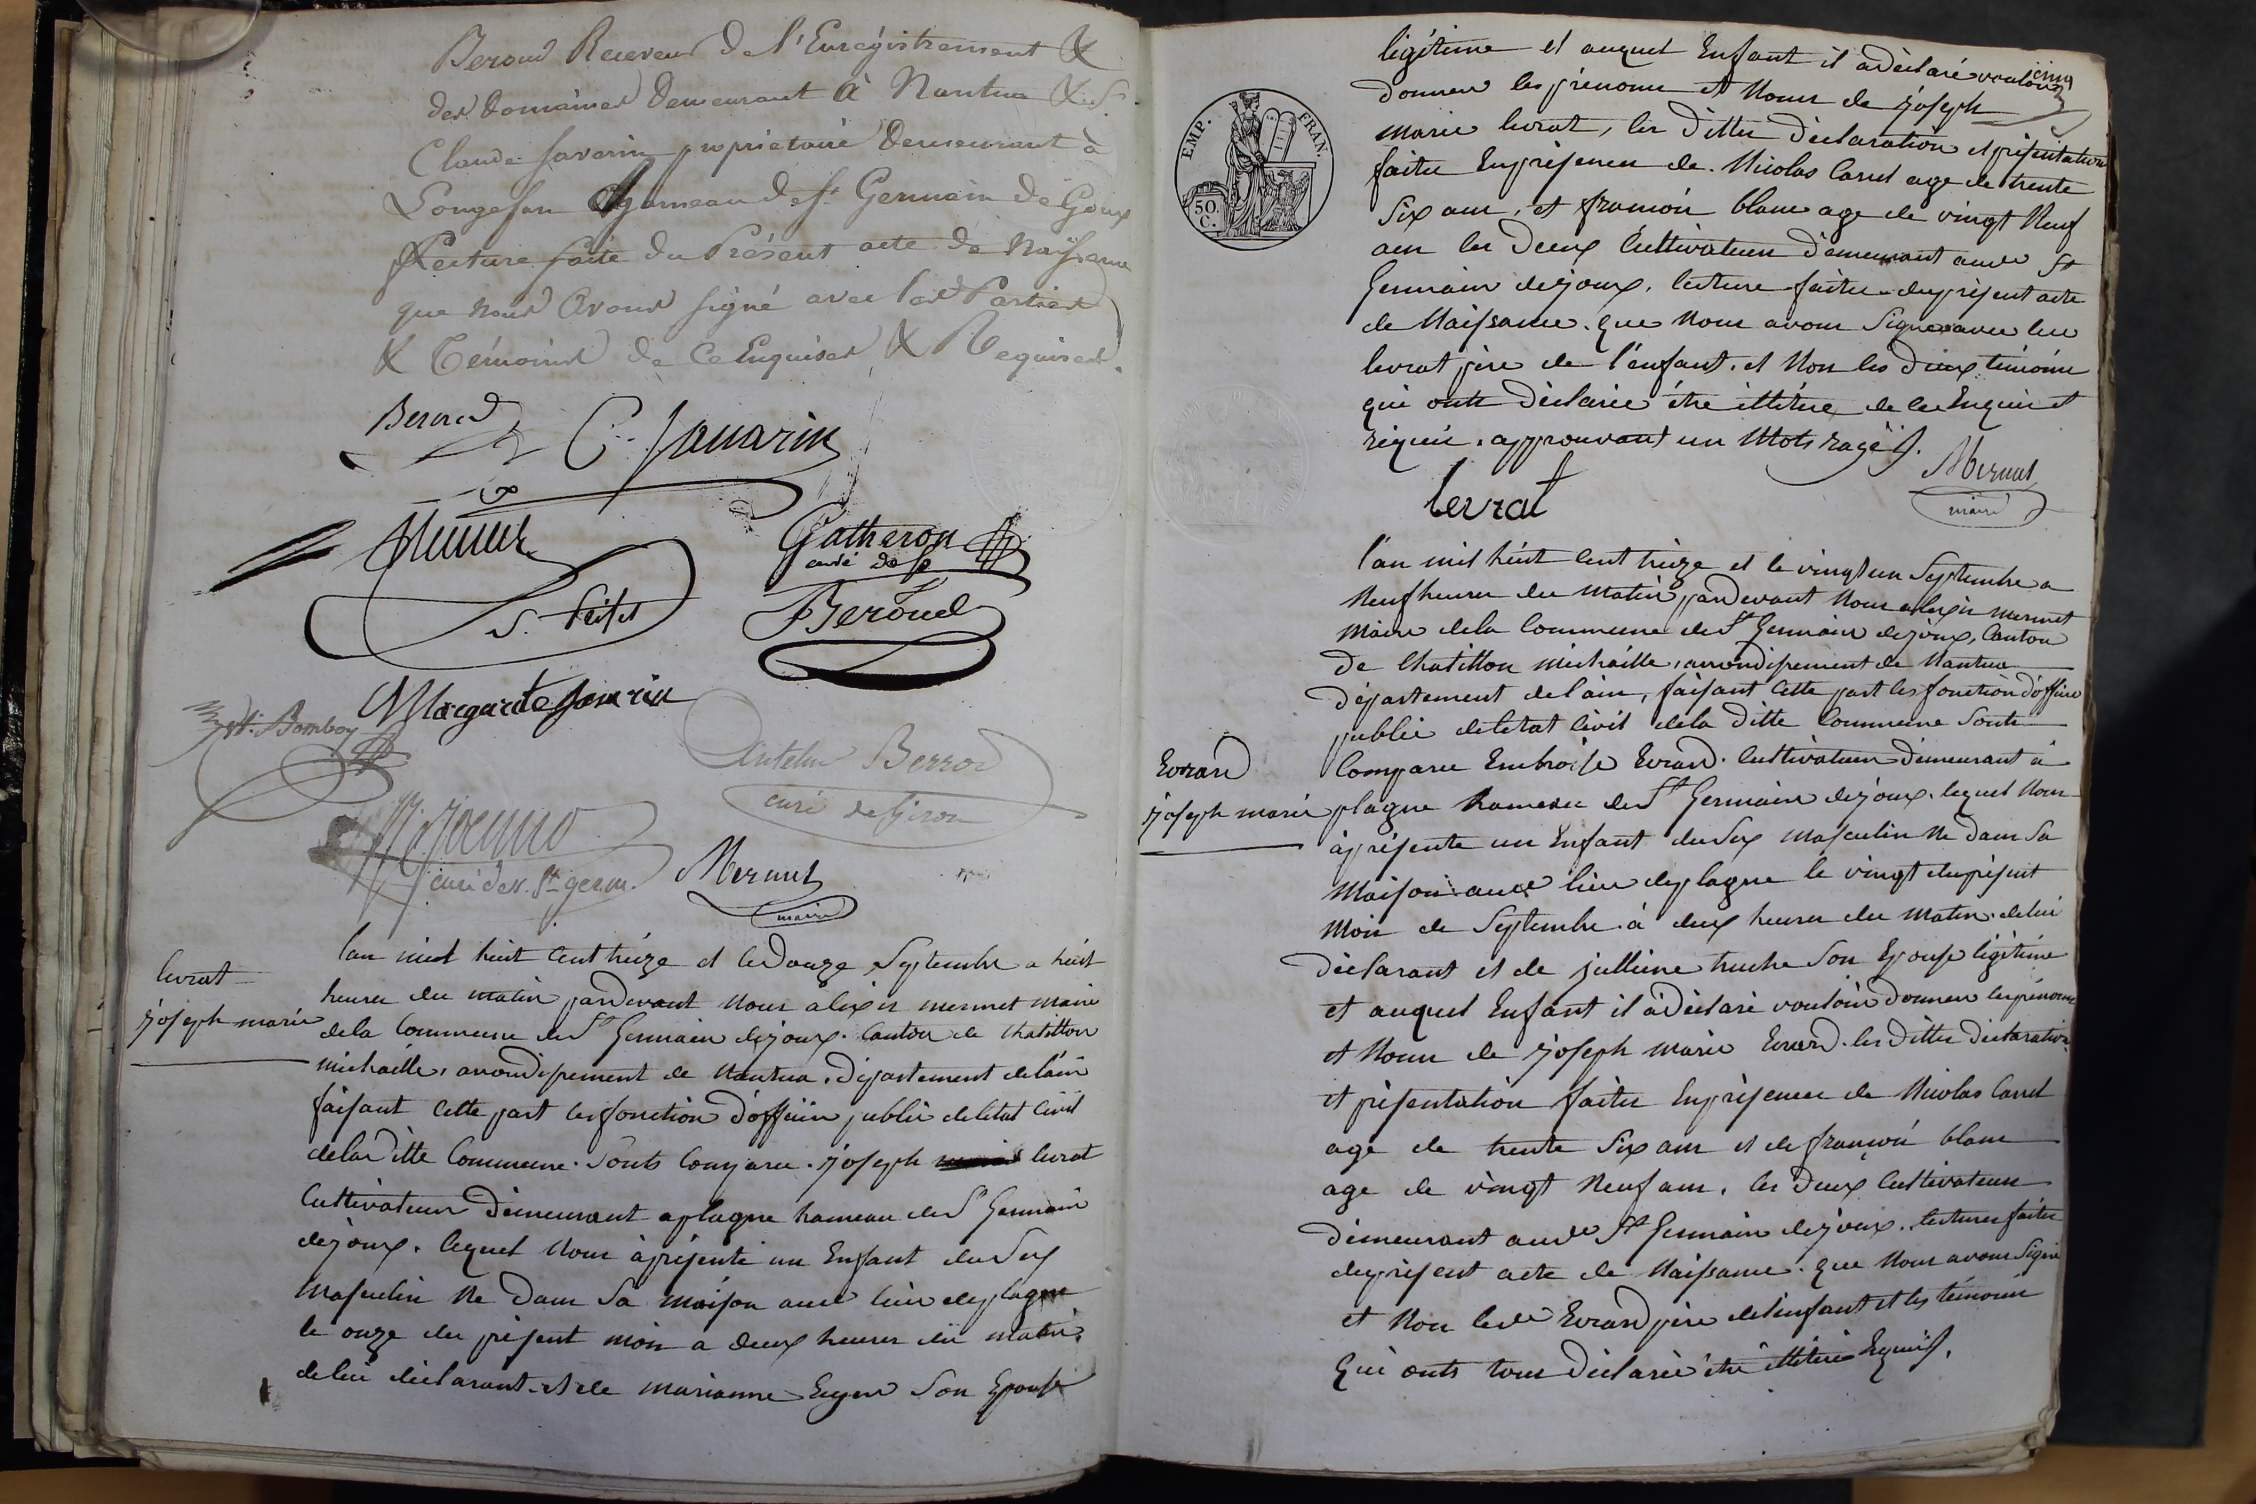 Beroud Receveur de l'Enregistrement &
des Domaines demeurant à Nantua & Sr.
Claude Savarin propriétaire demeurant à
Longefan hameau de St Germain de Joux
Lecture faite du Présent acte de Naissance
que nous avons signé avec les Parties
& Témoins de ce Enquises & Requises.
Beroud C. Savarin
Mermet Gatheron
curé de
S. Beroud
Margarite Savarin
Bomboy
Antelm Berrod
curé de Giron
curé de St germ. Mermet
maire
levrat
joseph marie
l'an mil huit cent treize et le douze Septembre a huit
heures du matin pardevant nous alexis mermet maire
de la Commune de St Germain dejoux. Canton de chatillon
michaille, arrondissement de Nantua. Département de lain
faisant cette part les fonction d'officier public de letat Civil
de la ditte Commune. Sonts comparu. joseph levrat
Cultivateur démeurant a plagne hameau de St Germain
dejoux. lequel Nous à présenté un Enfant du Sex
Masculin Né dans Sa maison aud lieu de plagne
le onze du présent mois a deux heures du matin,
de lui déclarant et de marianne Son Epouse
cinq
légitime et auquel Enfant il à déclaré vouloir
donner les prénoms et Noms de joseph
marie levrat, les dittes déclaration et présentation
faites En présence de Nicolas Carret age de trente
Six ans, et francois blanc age de vingt Neuf
ans les deux Cultivateurs démeurant aud St
Germain dejoux. lecture faite du présent acte
de Naissance. que Nous avons Signé avec led
levrat père de l'enfant. et Non les deux témoins
qui onts déclaré être illitéré de ce Enquis et
réquis. approuvant un Mots rayé.
EMP. FRAN.
50.
C.
levrat
Mermet
maire
Evrard
joseph marie
l'an mil huit cent treize et le vingt un Septembre a
Neuf heures du matin pardevant Nous alexis mermet
Maire de la Commune de St Germain dejoux, Canton
de Chatillon michaille, arrondissement de Nantua
département de lain, faisant cette part les fonction d'officier
public de letat Civil de la ditte Commune Sonts
Comparu Embroise Evrard. Cultivateur démeurant à
plagne hameau de St Germain dejoux. lequel Nous
à présenté un Enfant du Sex masculin Né dans Sa
Maison aud lieu de plagne le vingt du présent
Mois de Septembre à deux heures du matin. de lui
déclarant et de jullienne truche Son Epouse légitime
et auquel Enfant il à déclaré vouloir donner les prénoms
et Noms de joseph marie Evrard. les dittes déclaration
et présentation faites En présence de Nicolas Carret
age de trente Six ans et de francois blanc
age de vingt Neuf ans. les deux Cultivateurs
démeurant aud St Germain dejoux. lectures faites
du présent acte de Naissance. que Nous avons Signé
et Non led Evrard père de l'enfant et les témoins
Qui onts tous déclaré être illitéré Enquis.